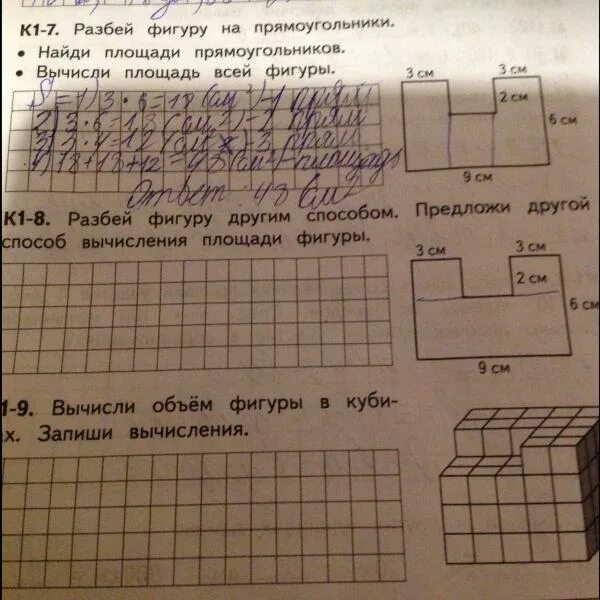 К1-7. Разбей фигуру на прямоугольники.
• Найди площади прямоугольников.
• Вычисли площадь всей фигуры.
S = 1) 3 · 6 = 18 (см²) - 1 прям
2) 3 · 6 = 18 (см²) - 2 прям
3) 3 · 4 = 12 (см²) - 3 прям
4) 18 + 18 + 12 = 48 (см²) - площадь
Ответ: 48 см²
3 см
3 см
2 см
6 см
9 см
К1-8. Разбей фигуру другим способом. Предложи другой
способ вычисления площади фигуры.
3 см
3 см
2 см
6 см
9 см
1-9. Вычисли объём фигуры в куби-
х. Запиши вычисления.